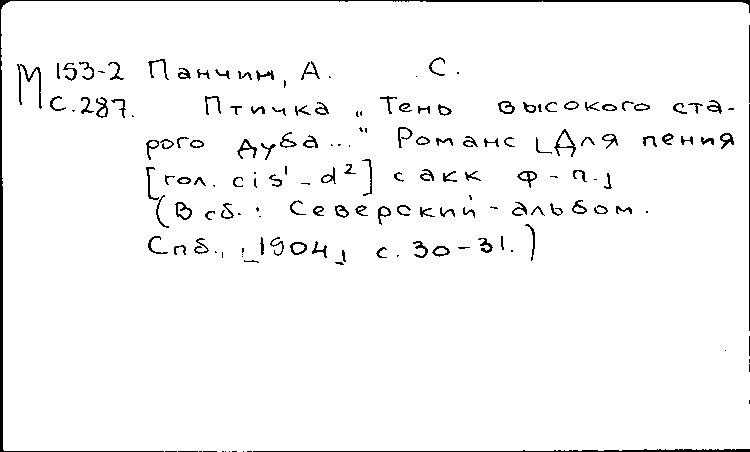 М 153-2 Панчин, А. С.
с. 287. Птичка „Тень высокого ста-
рого дуба..." Романс [Для пения
[гол. cis¹ - d²] с акк ф-п.]
(В сб.: Северский-альбом.
Спб., [1904] с. 30-31.)